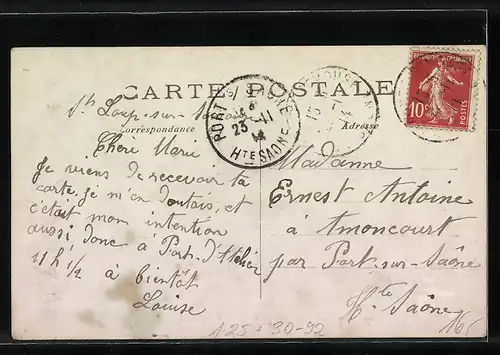 CARTE POSTALE
Correspondance
Adresse
St Loup-sur-
Chère Marie
Je viens de recevoir ta
carte, je m'en doutais, et
c'était mon intention
aussi, donc à Port-d'Atelier
11 h 1/2 à bientôt
Louise
Madame
Ernest Antoine
à Amoncourt
par Port-sur-Saône
Hte Saône
PORT S/ SAÔNE
23 -11
Hte SAONE
10c
POSTES
125 + 30-92